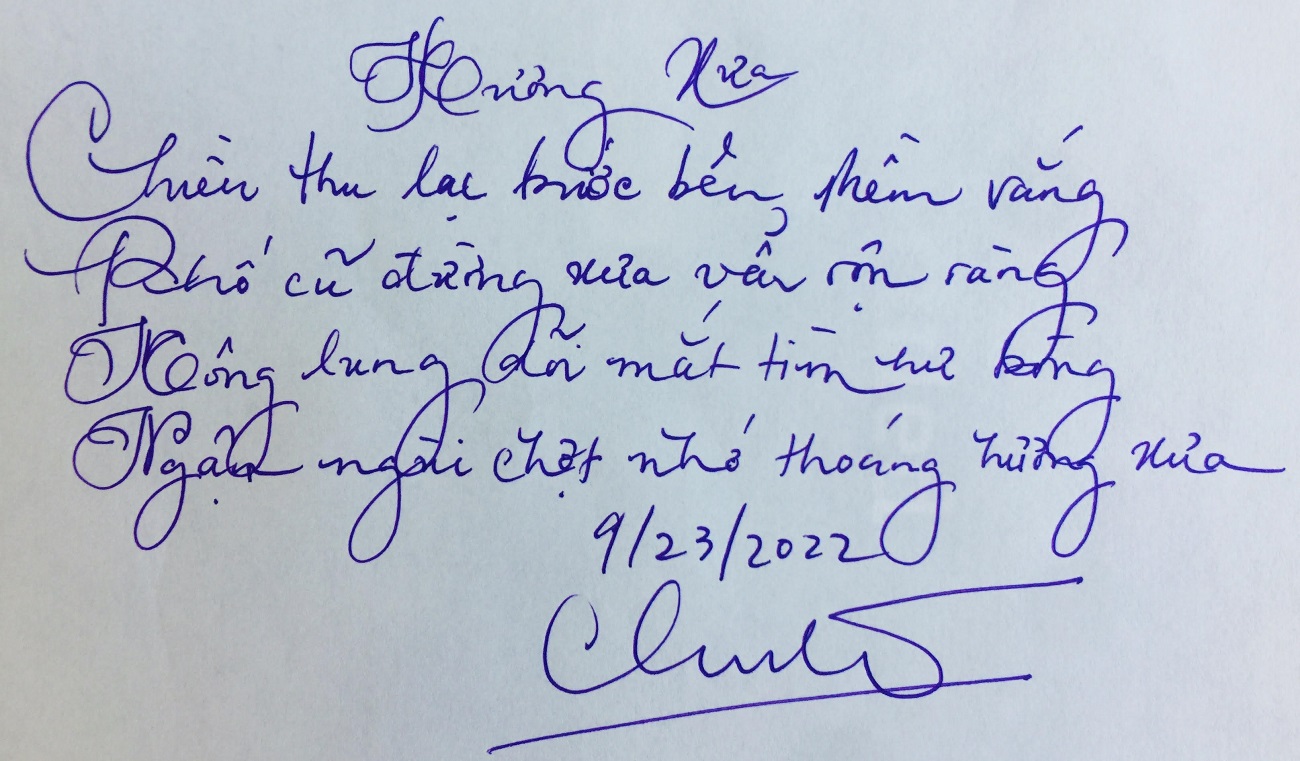 Hương Xưa
Chiều thu lạc bước bên thềm vắng
Phố cũ đường xưa vẫn rộn ràng
Mông lung dõi mắt tìm hư bóng
Ngậm ngùi chợt nhớ thoáng hương xưa
9/23/2022